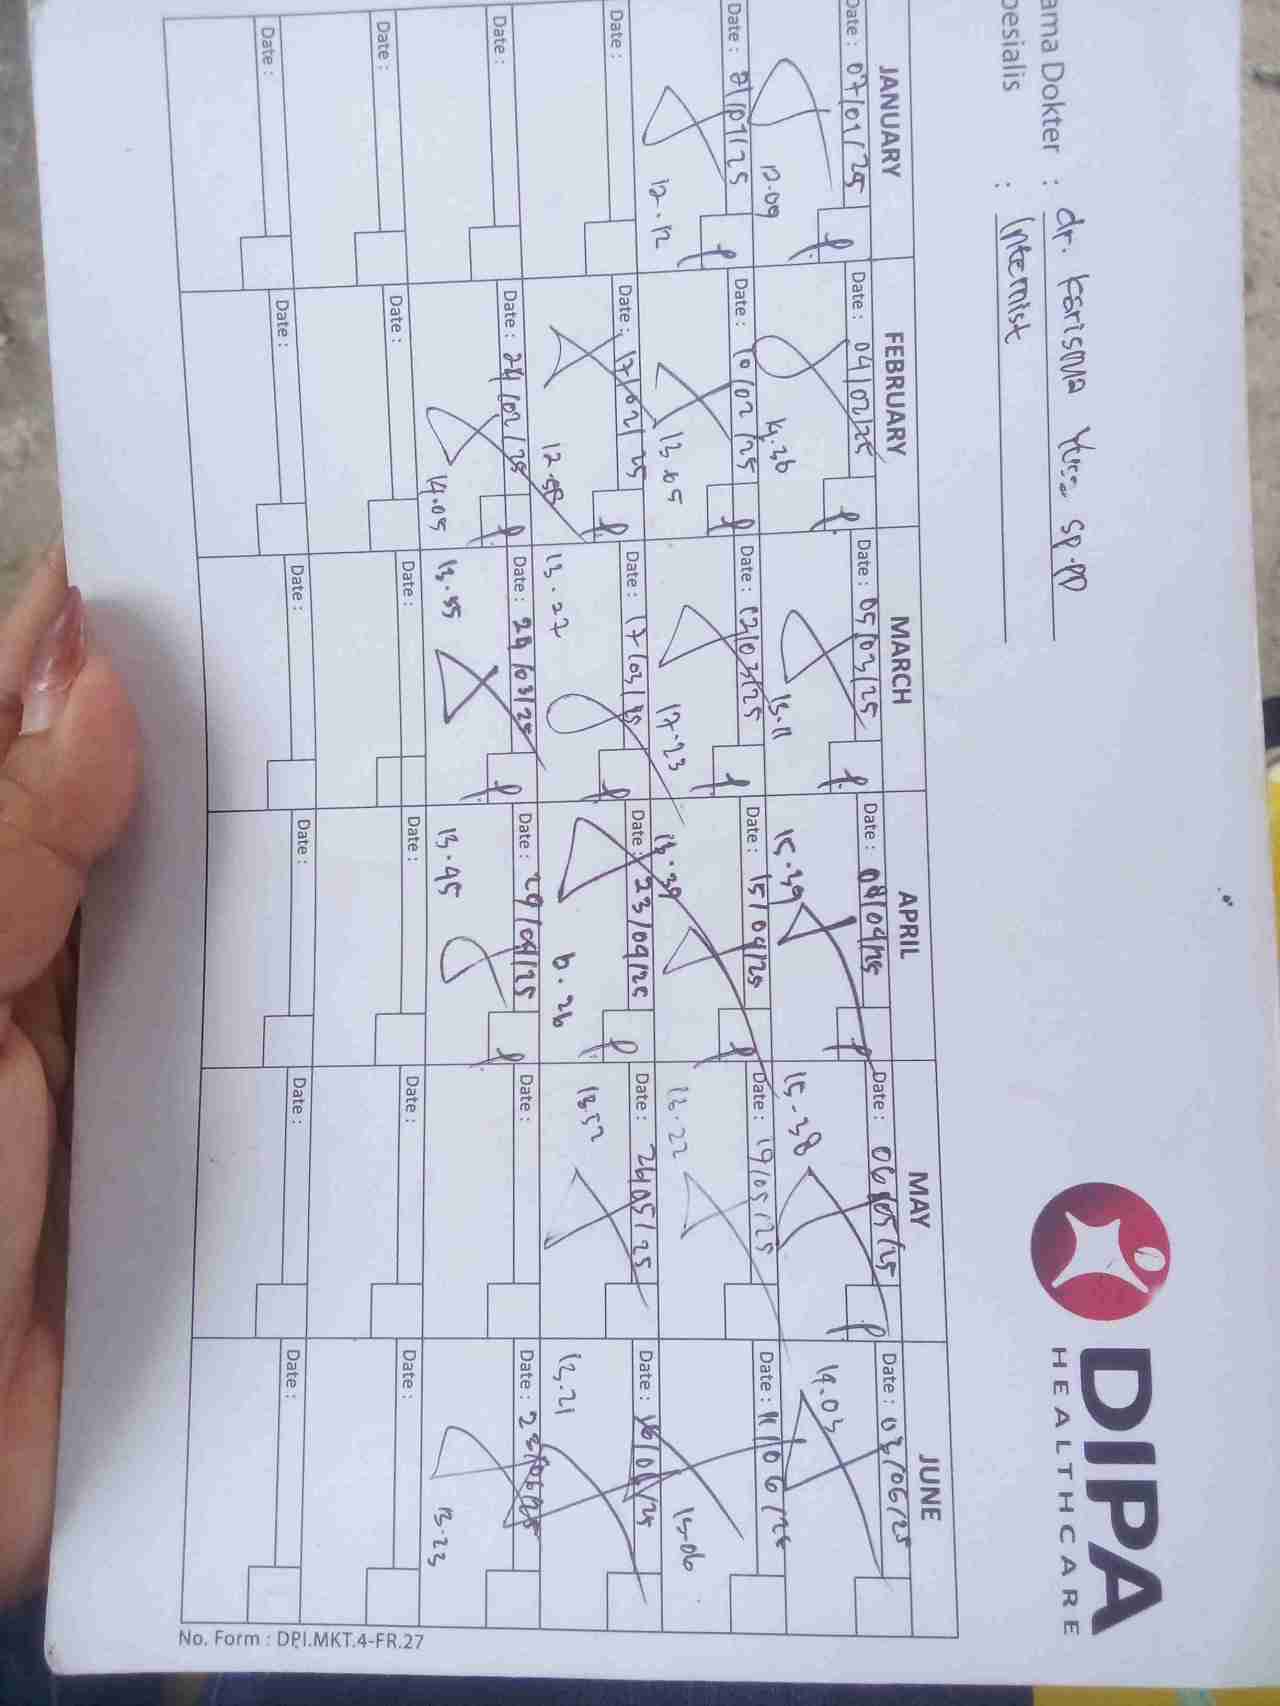 DIPA
HEALTHCARE
ama Dokter : dr. Karisma Sp.PD
pesialis : Internist
JANUARY FEBRUARY MARCH APRIL MAY JUNE
Date : 07/01/25 Date : 04/02/25 Date : 05/03/25 Date : 08/04/25 Date : 06/05/25 Date : 03/06/25
12.09 14.36 13.11 15.39 15.38 14.03
Date : 21/01/25 Date : 10/02/25 Date : 12/03/25 Date : 15/04/25 Date : 19/05/25 Date : 11/06/25
12.12 13.05 17.23 13.39 13.22 13.06
Date : Date : 17/02/25 Date : 17/03/25 Date : 23/04/25 Date : 26/05/25 Date : 16/06/25
12.55 13.27 13.52 13.21
Date : Date : 24/02/25 Date : 24/03/25 Date : 29/04/25 Date : Date : 23/06/25
14.05 13.55 13.45 13.23
Date : Date : Date : Date : Date : Date :
Date : Date : Date : Date : Date : Date :
No. Form : DPI.MKT.4-FR.27